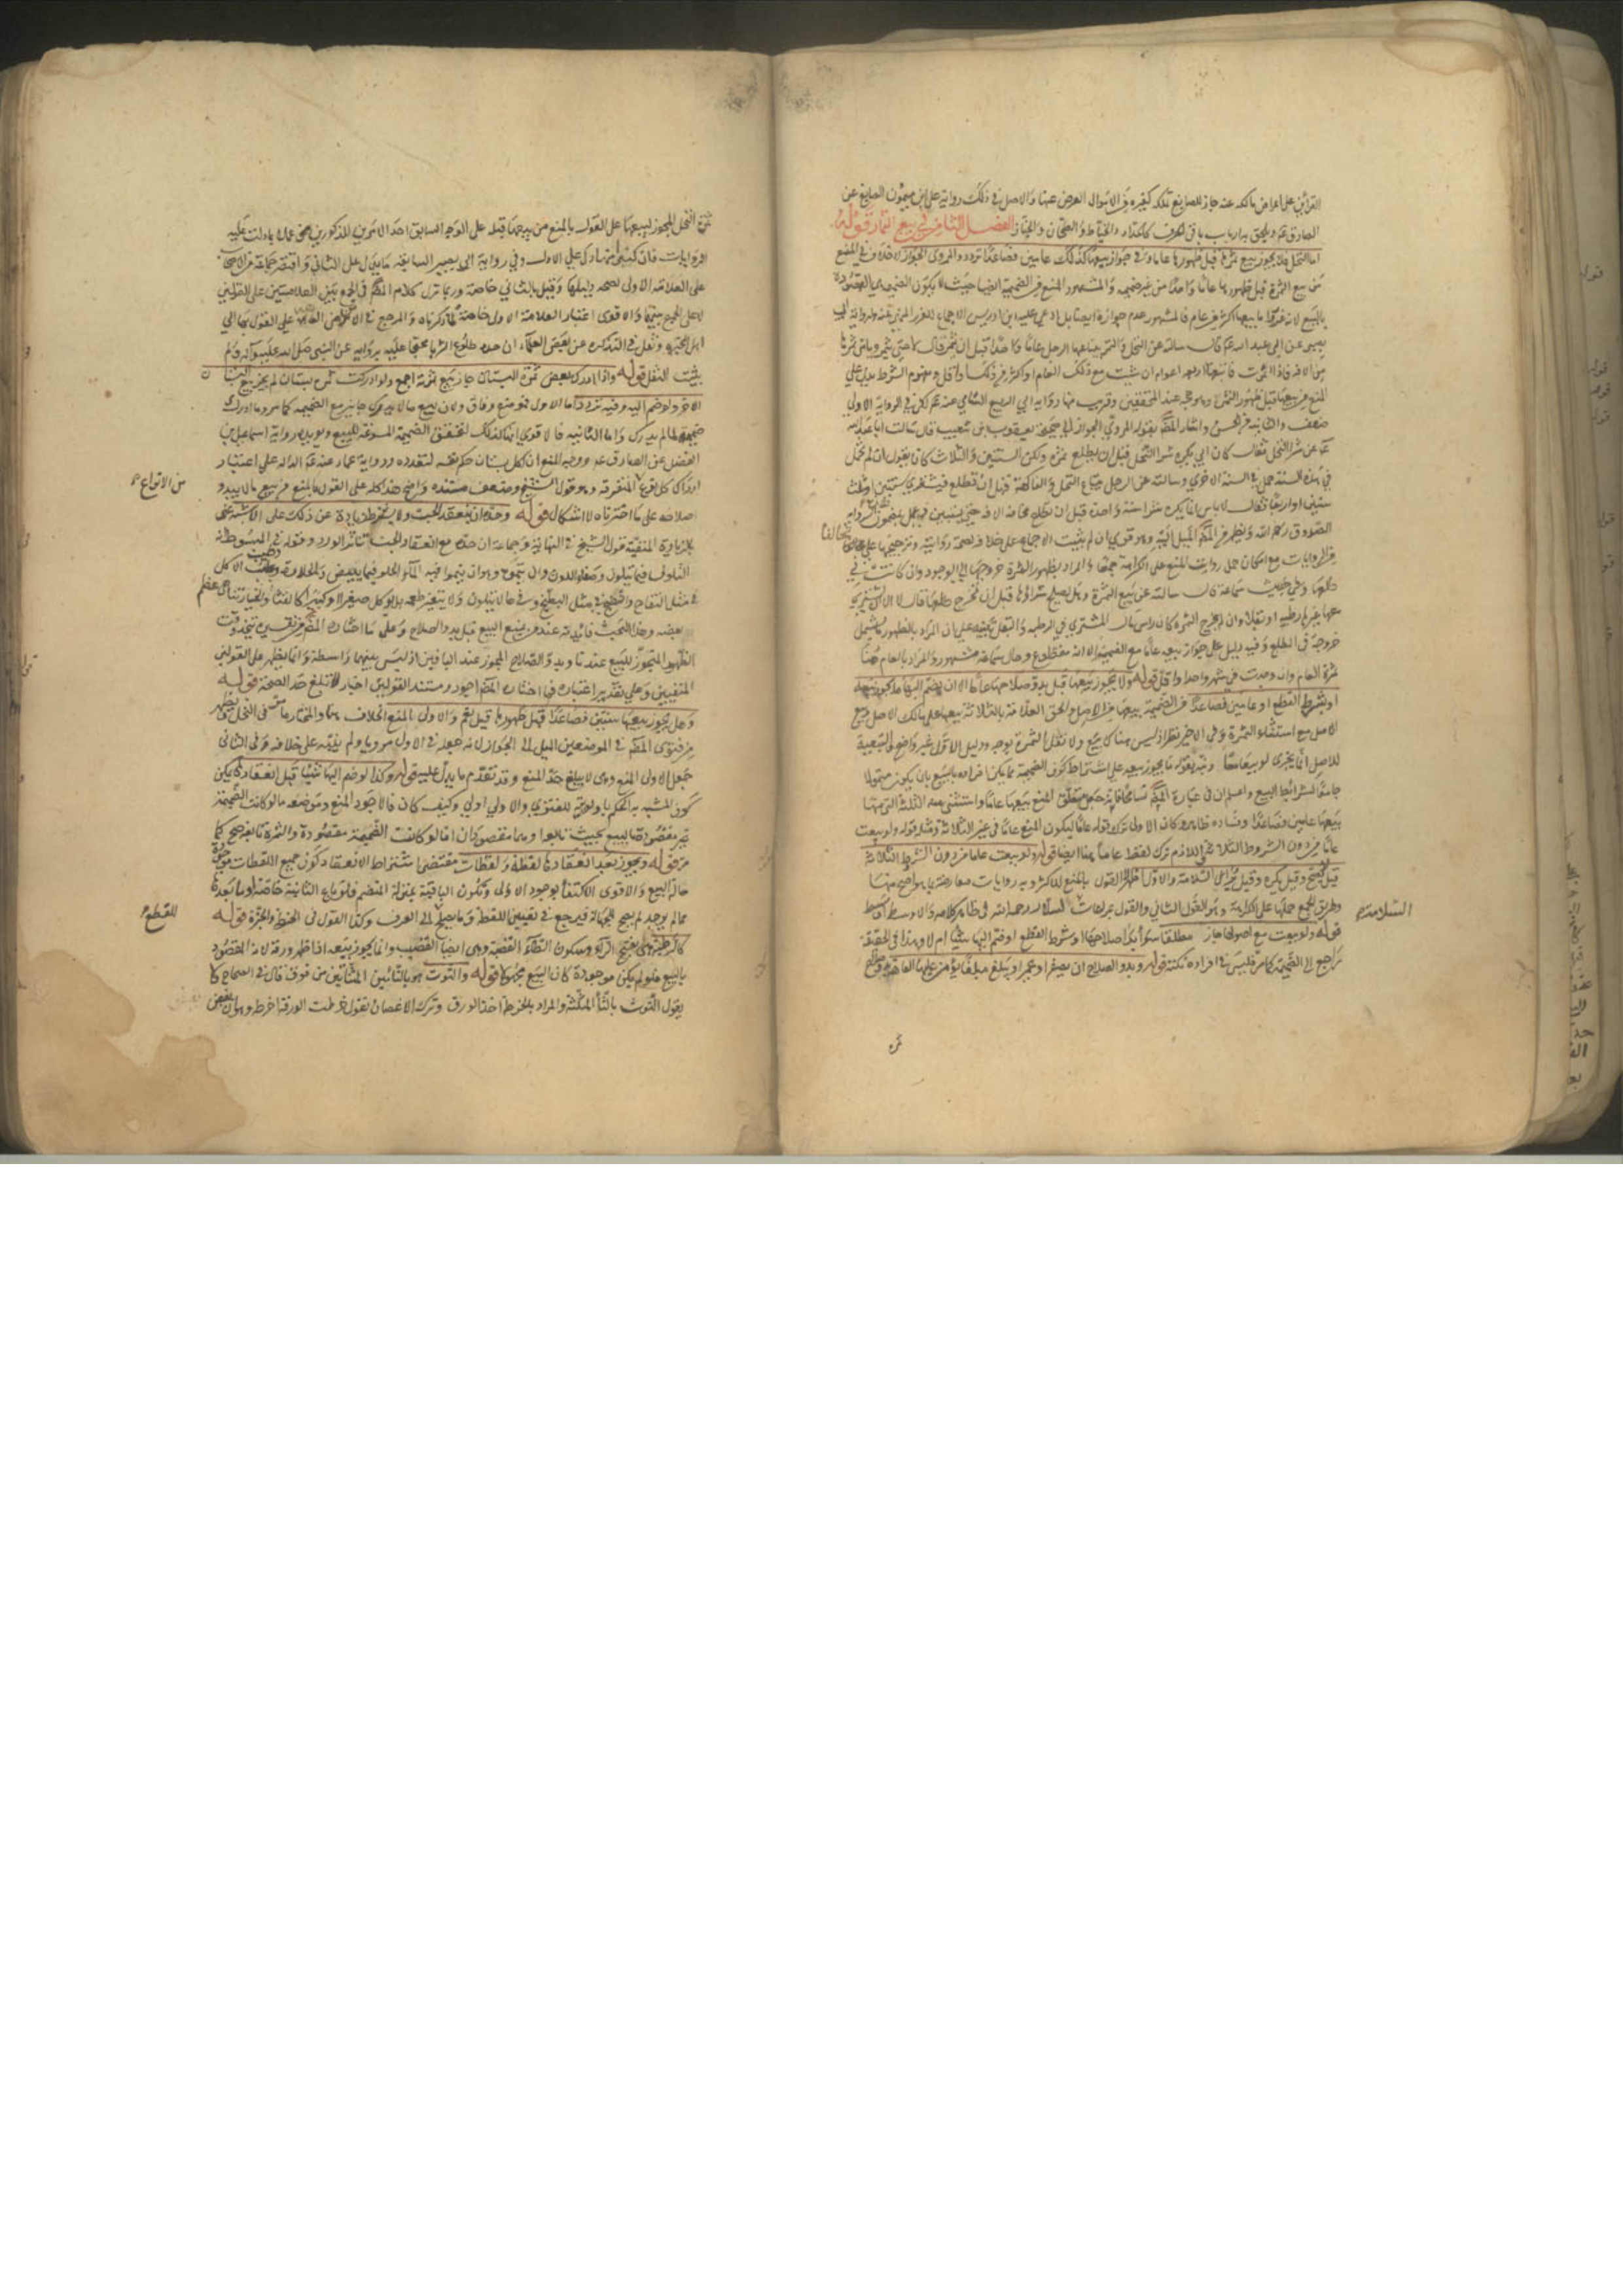 القرائن على اعراض مالكه عنه جاز للصايغ تملكه كغيره من الاموال المعرض عنها والاصل في ذلك رواية علي بن ميمون الصايغ عن
الصادق عم ويلحق به ارباب باقي الحرف كالحداد والخياط والطحان والخباز الفصل الثامن في بيع الثمار قوله
اما النخل فلا يجوز بيع ثمرته قبل ظهورها عاما وفي جواز بيعها كذلك عامين فصاعدا تردد والمروى الجواز لا خلاف في المنع
من بيع الثمرة قبل ظهورها عاما واحدا من غير ضميمة والمشهور المنع مع الضميمة ايضا حيث لا يكون الضميمة هي المقصودة
بالبيع لانه غرر واما بيعها اكثر من عام فالمشهور عدم جوازه ايضا بل ادعى عليه ابن ادريس الاجماع للغرر ولرواية ابي
بصير عن ابي عبد الله عم قال سالته عن النخل والثمر يبتاعها الرجل عاما واحدا قبل ان يثمر قال لا حتى يثمر ويامن ثمرتها
من الافة فاذا اثمرت فابتعها اربعة اعوام ان شئت مع ذلك العام او اكثر من ذلك او اقل ومفهوم الشرط يدل على
المنع من بيعها قبل ظهور الثمرة وهو حجة عند المحققين وقريب منها رواية ابي الربيع الشامي عنه عم لكن في الرواية الاولى
ضعف والثانية من الحسن واشار المص بقوله المروي الجواز الى صحيحة يعقوب بن شعيب قال سالت ابا عبد الله
عم عن شرا النخل فقال كان ابي يكره شرا النخل قبل ان يطلع ثمرة ولكن السنتين والثلاث كان يقول ان لم تحمل
في هذه السنة حمل في السنة الاخرى وسالته عن الرجل يبتاع النخل والفاكهة قبل ان تطلع فيشتري سنتين او ثلث
سنين او اربعا فقال لا باس انما يكره شرا سنة واحدة قبل ان تطلع مخافة الافة حتى يستبين وعمل بمضمون
الصدوق رحمه الله ويظهر من المص الميل اليه وهو قوي ان لم يثبت الاجماع على خلافه لصحة روايته وترجيحها على ما خالفها
من الروايات مع امكان حمل روايات المنع على الكراهة جمعا والمراد بظهور الثمرة خروجها الى الوجود وان كانت في
طلعها وفي حديث سماعة قال سالته عن بيع الثمرة وهل يصلح شراؤها قبل ان يخرج طلعها فقال لا الا ان يشتري
معها غيرها رطبة او بقلا وان لم يخرج الثمرة كان راس مال المشتري في الرطبة والبقل تنبيه على ان المراد بالظهور ما يشمل
خروجه في الطلع وفيه دليل على جواز بيعه عاما مع الضميمة الا انه مقطوع وحال سماعة مشهور والمراد بالعام هنا
ثمرة العام وان وجدت في شهر واحد او اقل قوله ولا يجوز بيعها قبل بدو صلاحها عاما الا ان يضم اليها ما يجوز بيعه
او بشرط القطع او عامين فصاعدا من الضميمة بيعها مع الاصل والحق العلامة بالثلاثة بيعها على مالك الاصل وبيع
الاصل مع استثناء الثمرة وفي الاخير نظر اذ ليس هناك بيع ولا نقل للثمرة بوجه ودليل الاول غير واضح اذ التبعية
للاصل انما يجزى لو بيعا معا ونبه بقوله ما يجوز بيعه على اشتراط كون الضميمة مما يمكن افراده بالبيع بان يكون متمولا
جامعا لشرائط البيع واعلم ان في عبارة المص تسامحا فانه جعل متعلق المنع بيعها عاما واستثنى منه الثلثة التي منها
بيعها عامين فصاعدا وفساده ظاهر وكان الاولى ترك قوله عاما ليكون المنع عاما في غير الثلاثة ومثله قوله ولو بيعت
عاما من دون الشروط الثلاثة فاللازم ترك لفظ عاما هنا ايضا قوله ولو بيعت عاما من دون الشروط الثلاثة
قيل لا يصح وقيل يكره وقيل يراعى السلامة والاول اظهر القول بالمنع للاكثر وبه روايات معارضة بما هو اصح منها
وطريق الجمع حملها على الكراهة وهو القول الثاني والقول بمراعات السلامة لسلار رحمه الله في ظاهر كلامه والاوسط اوسط
قوله ولو بيعت مع اصولها جاز مطلقا سواء بدا صلاحها او شرط القطع او ضم اليها شيئا ام لا وهذا في الحقيقة
راجع الى الضميمة كما مر فليس في افراده نكتة قوله وبدو الصلاح ان يصفر او يحمر او يبلغ مبلغا يؤمن عليها العاهة
ثمرة
ثمرة النخل المجوز لبيعها على القول بالمنع من بيعها قبله على الوجه السابق احد الامرين المذكورين عملا بما دلت عليه
الروايات فان كثيرا منها دل على الاول وفي رواية ابي بصير السابقة ما يدل على الثاني واقتصر جماعة من الاصحاب
على العلامة الاولى لصحة دليلها وقيل بالثاني خاصة وربما نزل كلام المص في الجمع بين العلامتين على القولين
لا على الجمع بينهما والاقوى اعتبار العلامة الاولى خاصة لما ذكرناه والمرجع في الامن من العاهة على القول بها الى
اهل الخبرة ونقل في التذكرة عن بعض العلماء ان حده طلوع الثريا محتجا عليه برواية عن النبي صلى الله عليه وآله ولم
يثبت النقل قوله واذا ادرك بعض ثمرة البستان جاز بيع ثمرته اجمع ولو ادركت ثمرة بستان لم يجز بيع البستان
الاخر ولو ضم اليه وفيه تردد اما الاول فموضع وفاق ولان بيع ما لم يدرك جايز مع الضميمة كما مر وما ادرك
ضميمة لما لم يدرك واما الثانية فالاقوى انها كذلك لتحقق الضميمة المسوغة للبيع ويؤيده رواية اسماعيل بن
الفضل عن الصادق عم ووجه المنع ان لكل بستان حكم نفسه لتعدده ورواية عمار عنه عم الدالة على اعتبار
ادراك كل نوع من الانواع المتفرقة وهو قول الشيخ وضعف مستنده واضح هذا كله على القول بالمنع من بيع ما لم يبد
صلاحه على ما اخترناه لا اشكال قوله وحده ان ينعقد الحب ولا يشترط زيادة عن ذلك على الاشبه نبه
بالزيادة المنفية قول الشيخ في النهاية وجماعة ان حده مع انعقاد الحب تناثر الورد وقوله في المبسوط انه
التلون فيما يتلون وصفاء اللون وان يتموه وهو ان ينموا فيه الماء الحلو فيما يبيض والحلاوة وطيب الاكل
في مثل التفاح والنضج في مثل البطيخ وفي ما لا يتلون ولا يتغير طعمه بل يوكل صغيرا وكبيرا كالقثا والخيار تناهي عظم
بعضه وهذا البحث فائدته عند من يمنع البيع قبل بدو الصلاح وعلى ما اختاره المص من تفسيره يتحد وقت
الظهور المجوز للبيع عندنا وبدو الصلاح المجوز عند الباقين اذ ليس بينهما واسطة وانما يظهر على القولين
المنفيين وعلى تقدير اعتباره فما اختاره المص اجود ومستند القولين اخبار لا تبلغ حد الصحة قوله
وهل يجوز بيعها سنتين فصاعدا قبل ظهورها قيل نعم والاولى المنع الخلاف هنا والمختار ما مر في النخل ويظهر
من فتوى المص في الموضعين الميل الى الجواز لانه جعله في الاول مرويا ولم ينبه على خلافه وفي الثاني
جعل الاولى المنع وهي لا يبلغ حد المنع وقد تقدم ما يدل عليه قوله وكذا لو ضم اليها شيئا قبل انعقادها يمكن
كون المشبه به الحكم باولوية للفتوى والاولى اولى وكيف كان فالاجود المنع وموضعه ما لو كانت الضميمة
غير مقصودة بالبيع بحيث تكون تابعا وهما مقصودان اما لو كانت الضميمة مقصودة والثمرة تابعة صح كما
مر قوله ويجوز بعد انعقادها لقطة ولقطات مقتضى اشتراط الانعقاد كون جميع اللقطات موجودة
حالة البيع والاقوى الاكتفا بوجود الاولى وتكون الباقية بمنزلة المنضم فلو باع الثانية خاصة او ما بعدها
مما لم يوجد لم يصح للجهالة فيرجع في تعيين اللقط وما يصلح للقطع الى العرف وكذا القول في الخرط والجزة قوله
كالرطبة هي بفتح الراء وسكون الطاء الفصة وهي ايضا القضب وانما يجوز بيعه اذا ظهر ورقه لانه المقصود
بالبيع فلو لم يكن موجودة كان البيع مجهولا قوله والتوت هو بالتائين المثناتين من فوق قال في الصحاح لا
يقول التوث بالثاء المثلثة والمراد بالخرط اخذ الورق وترك الاغصان تقول خرطت الورقة اخرطه وهو ان تقبض